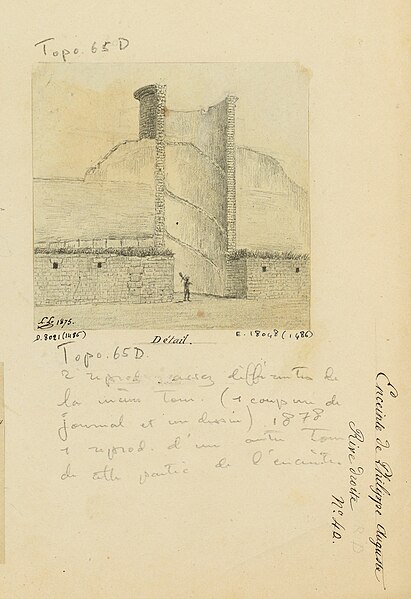 Topo. 65 D
1875.
D. 8021 (1486)
Détail.
E. 18048 (1486)
Topo. 65 D.
2 reprod. assez différentes de
la même tour. (1 coupure de
journal et un dessin) 1878
1 reprod. d'une autre tour
de cette partie de l'enceinte
Enceinte de Philippe Auguste
Rive droite
N° 4a.